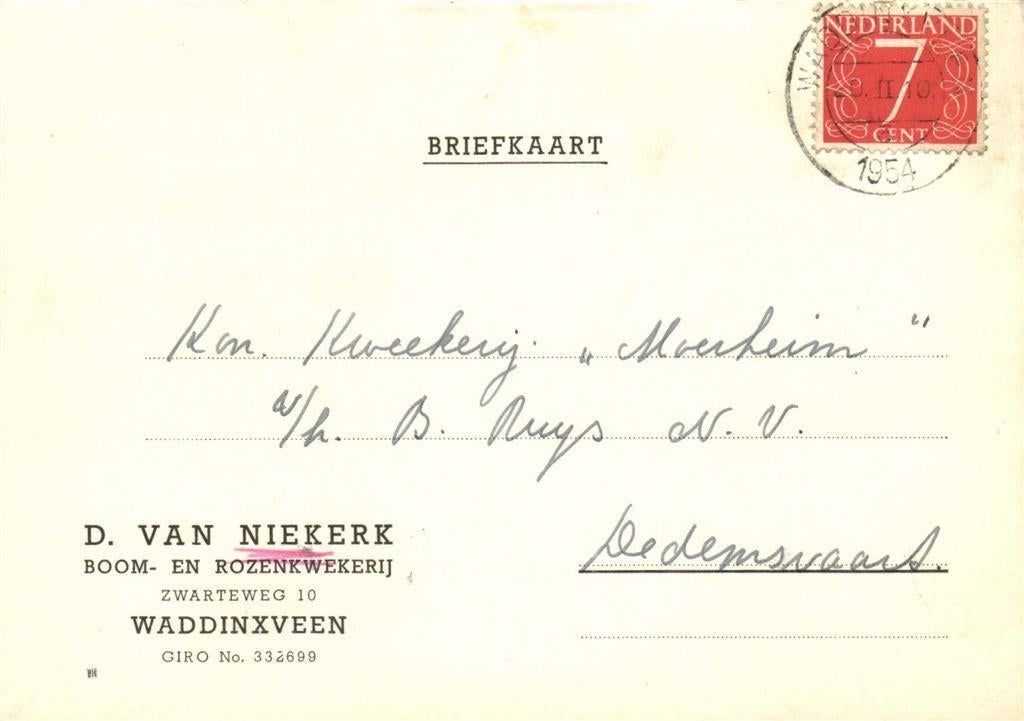 NEDERLAND
7
CENT
1954
BRIEFKAART
Kon. Kweekerij „Moerheim"
v/h. B. Ruys N.V.
Dedemsvaart.
D. VAN NIEKERK
BOOM- EN ROZENKWEKERIJ
ZWARTEWEG 10
WADDINXVEEN
GIRO No. 332699